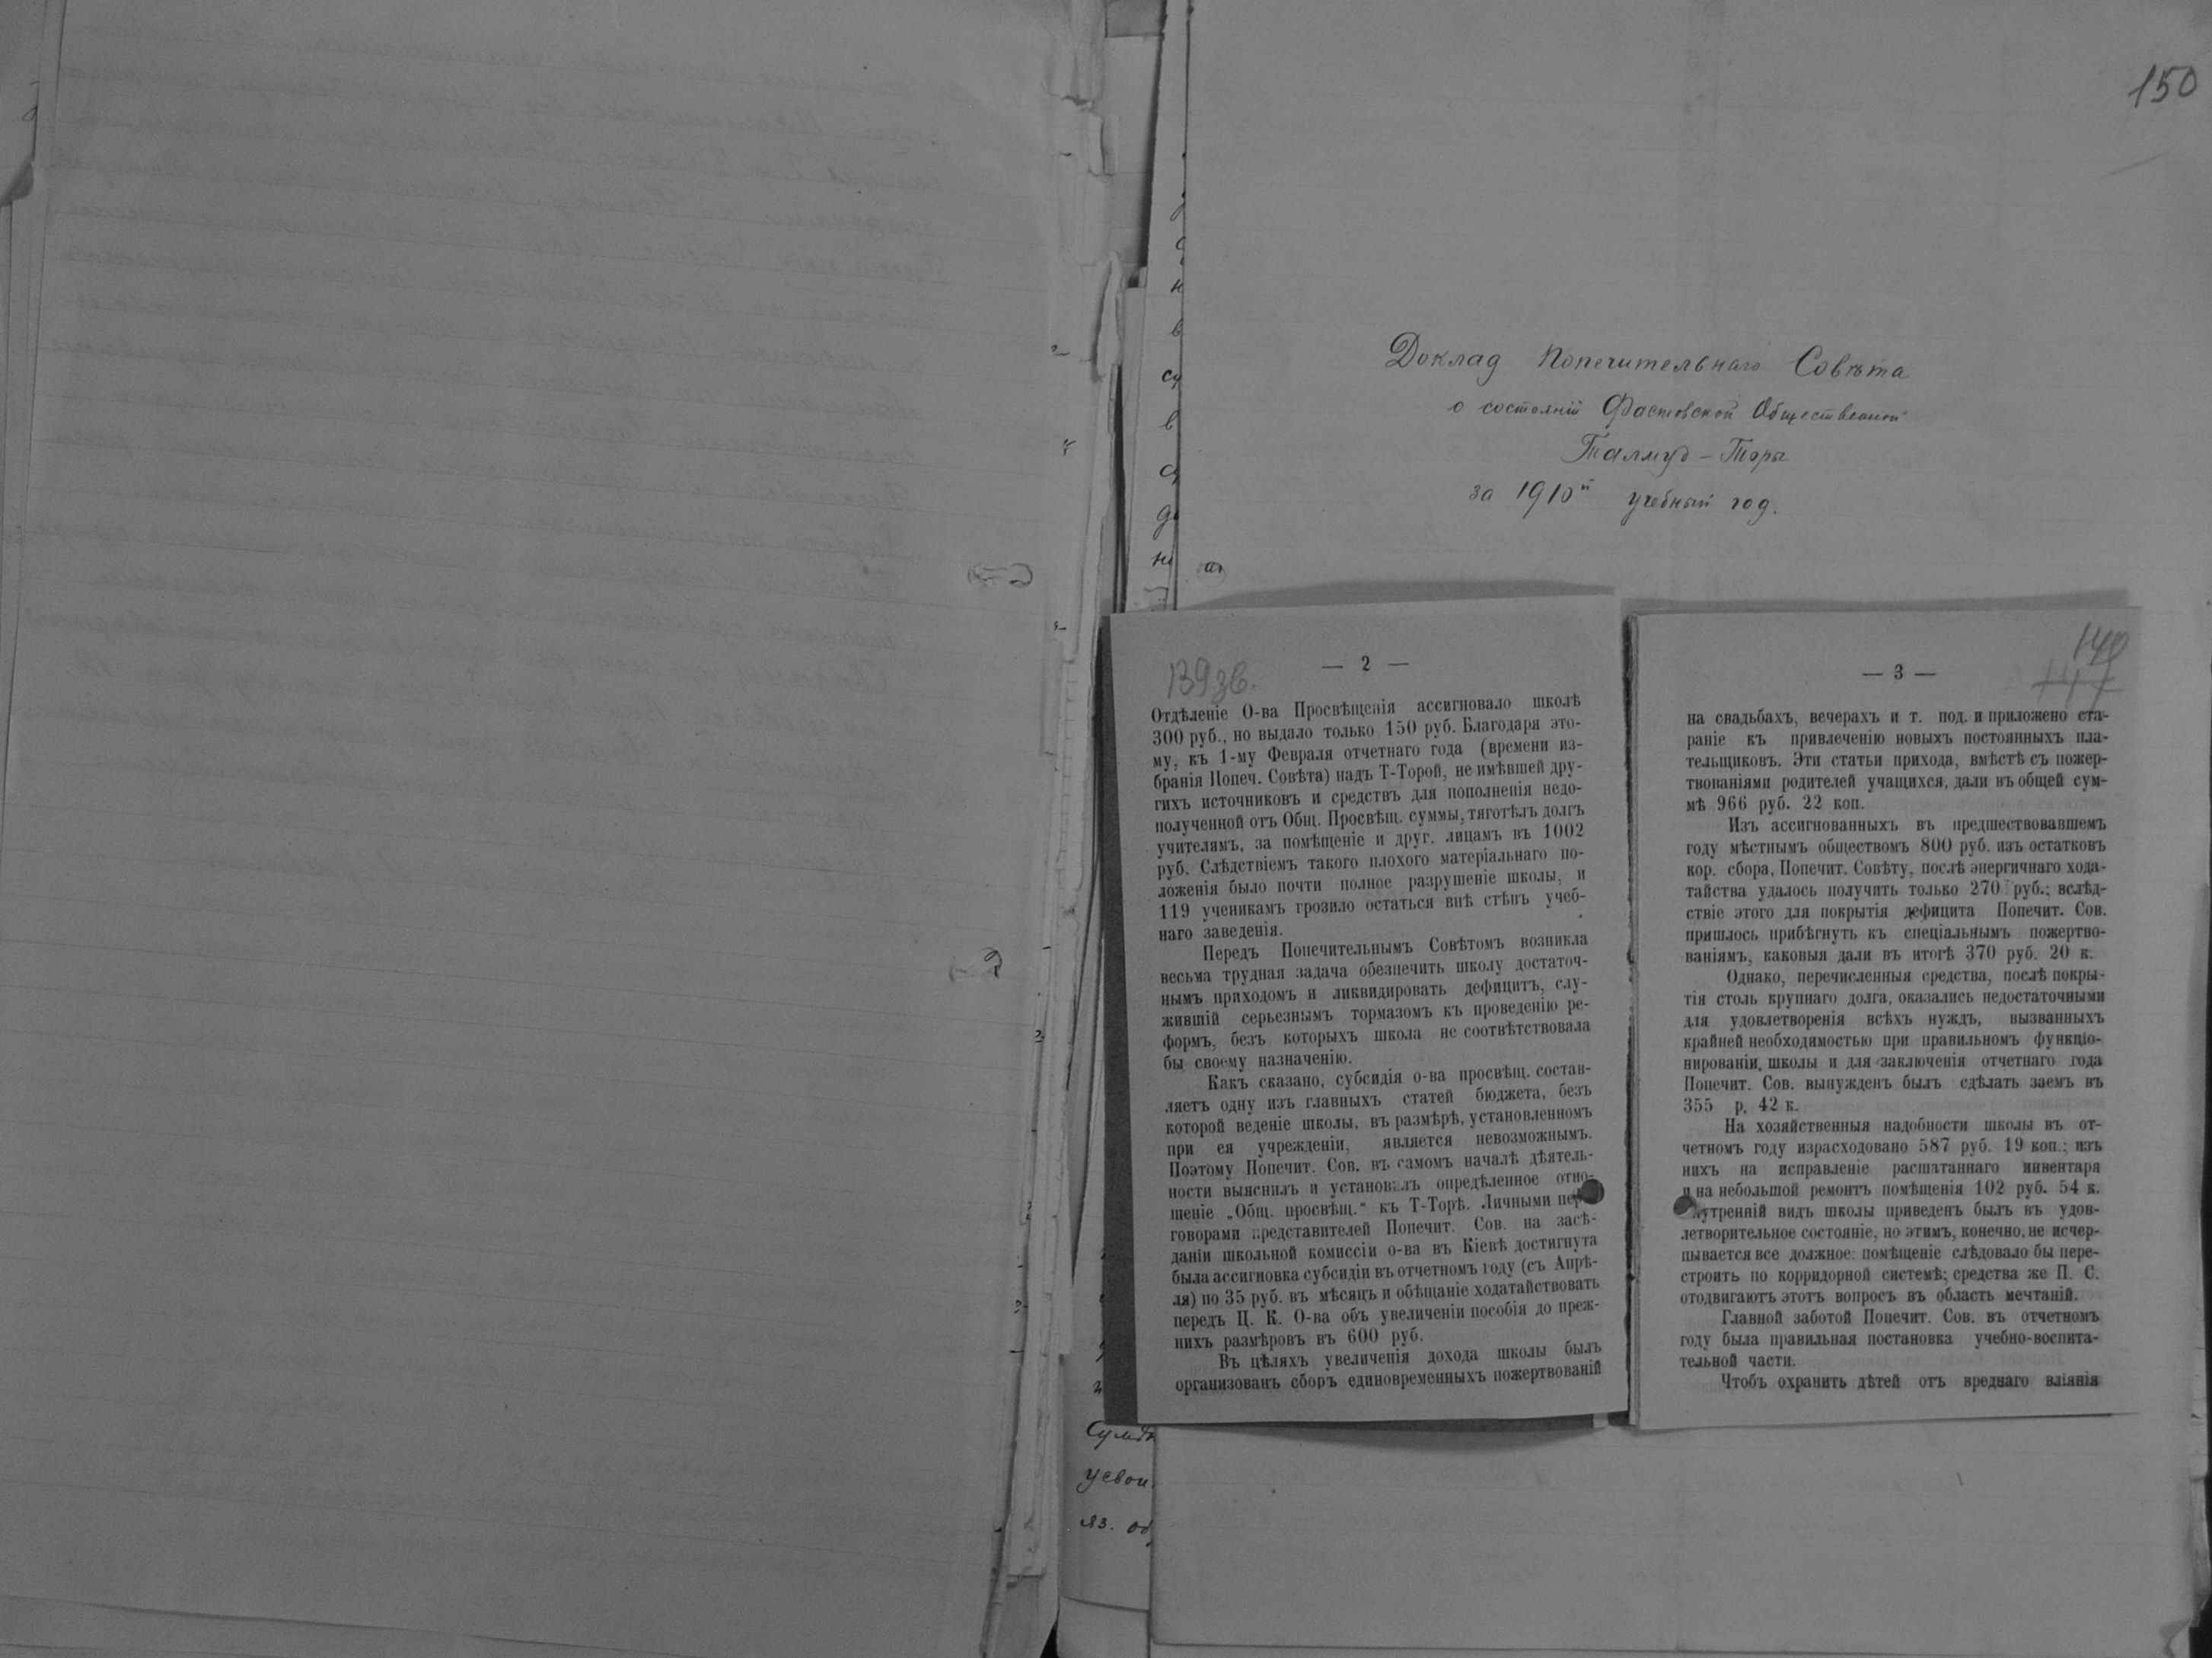 150
Доклад Попечительнаго Совѣта
о состояніи Фастовской Общественной
Талмуд-Торы
за 1910й учебный год.
139зв.
— 2 —
Отдѣленіе О-ва Просвѣщенія ассигновало школѣ
300 руб., но выдало только 150 руб. Благодаря это-
му, къ 1-му Февраля отчетнаго года (времени из-
бранія Попеч. Совѣта) надъ Т-Торой, не имѣвшей дру-
гихъ источниковъ и средствъ для пополненія недо-
полученной отъ Общ. Просвѣщ. суммы, тяготѣлъ долгъ
учителямъ, за помѣщеніе и друг. лицамъ въ 1002
руб. Слѣдствіемъ такого плохого матеріальнаго по-
ложенія было почти полное разрушеніе школы, и
119 ученикамъ грозило остаться внѣ стѣнъ учеб-
наго заведенія.
Передъ Попечительнымъ Совѣтомъ возникла
весьма трудная задача обезпечить школу достаточ-
нымъ приходомъ и ликвидировать дефицитъ, слу-
жившій серьезнымъ тормазомъ къ проведенію ре-
формъ, безъ которыхъ школа не соотвѣтствовала
бы своему назначенію.
Какъ сказано, субсидія о-ва просвѣщ. состав-
ляетъ одну изъ главныхъ статей бюджета, безъ
которой веденіе школы, въ размѣрѣ, установленномъ
при ея учрежденіи, является невозможнымъ.
Поэтому Попечит. Сов. въ самомъ началѣ дѣятель-
ности выяснилъ и установилъ опредѣленное отно-
шеніе „Общ. просвѣщ." къ Т-Торѣ. Личными пере-
говорами представителей Попечит. Сов. на засѣ-
даніи школьной комиссіи о-ва въ Кіевѣ достигнута
была ассигновка субсидіи въ отчетномъ году (съ Апрѣ-
ля) по 35 руб. въ мѣсяцъ и обѣщаніе ходатайствовать
передъ Ц. К. О-ва объ увеличеніи пособія до преж-
нихъ размѣровъ въ 600 руб.
Въ цѣляхъ увеличенія дохода школы былъ
организованъ сборъ единовременныхъ пожертвованій
140
147
— 3 —
на свадьбахъ, вечерахъ и т. под. и приложено ста-
раніе къ привлеченію новыхъ постоянныхъ пла-
тельщиковъ. Эти статьи прихода, вмѣстѣ съ пожер-
твованіями родителей учащихся, дали въ общей сум-
мѣ 966 руб. 22 коп.
Изъ ассигнованныхъ въ предшествовавшемъ
году мѣстнымъ обществомъ 800 руб. изъ остатковъ
кор. сбора, Попечит. Совѣту, послѣ энергичнаго хода-
тайства удалось получить только 270 руб.; вслѣд-
ствіе этого для покрытія дефицита Попечит. Сов.
пришлось прибѣгнуть къ спеціальнымъ пожертво-
ваніямъ, каковыя дали въ итогѣ 370 руб. 20 к.
Однако, перечисленныя средства, послѣ покры-
тія столь крупнаго долга, оказались недостаточными
для удовлетворенія всѣхъ нуждъ, вызванныхъ
крайней необходимостью при правильномъ функціо-
нированіи, школы и для заключенія отчетнаго года
Попечит. Сов. вынужденъ былъ сдѣлать заемъ въ
355 р. 42 к.
На хозяйственныя надобности школы въ от-
четномъ году израсходовано 587 руб. 19 коп.; изъ
нихъ на исправленіе расшатаннаго инвентаря
и на небольшой ремонтъ помѣщенія 102 руб. 54 к.
нутренній видъ школы приведенъ былъ въ удов-
летворительное состояніе, но этимъ, конечно, не исчер-
пывается все должное: помѣщеніе слѣдовало бы пере-
строить по корридорной системѣ; средства же П. С.
отодвигаютъ этотъ вопросъ въ область мечтаній.
Главной заботой Попечит. Сов. въ отчетномъ
году была правильная постановка учебно-воспита-
тельной части.
Чтобъ охранить дѣтей отъ вреднаго вліянія